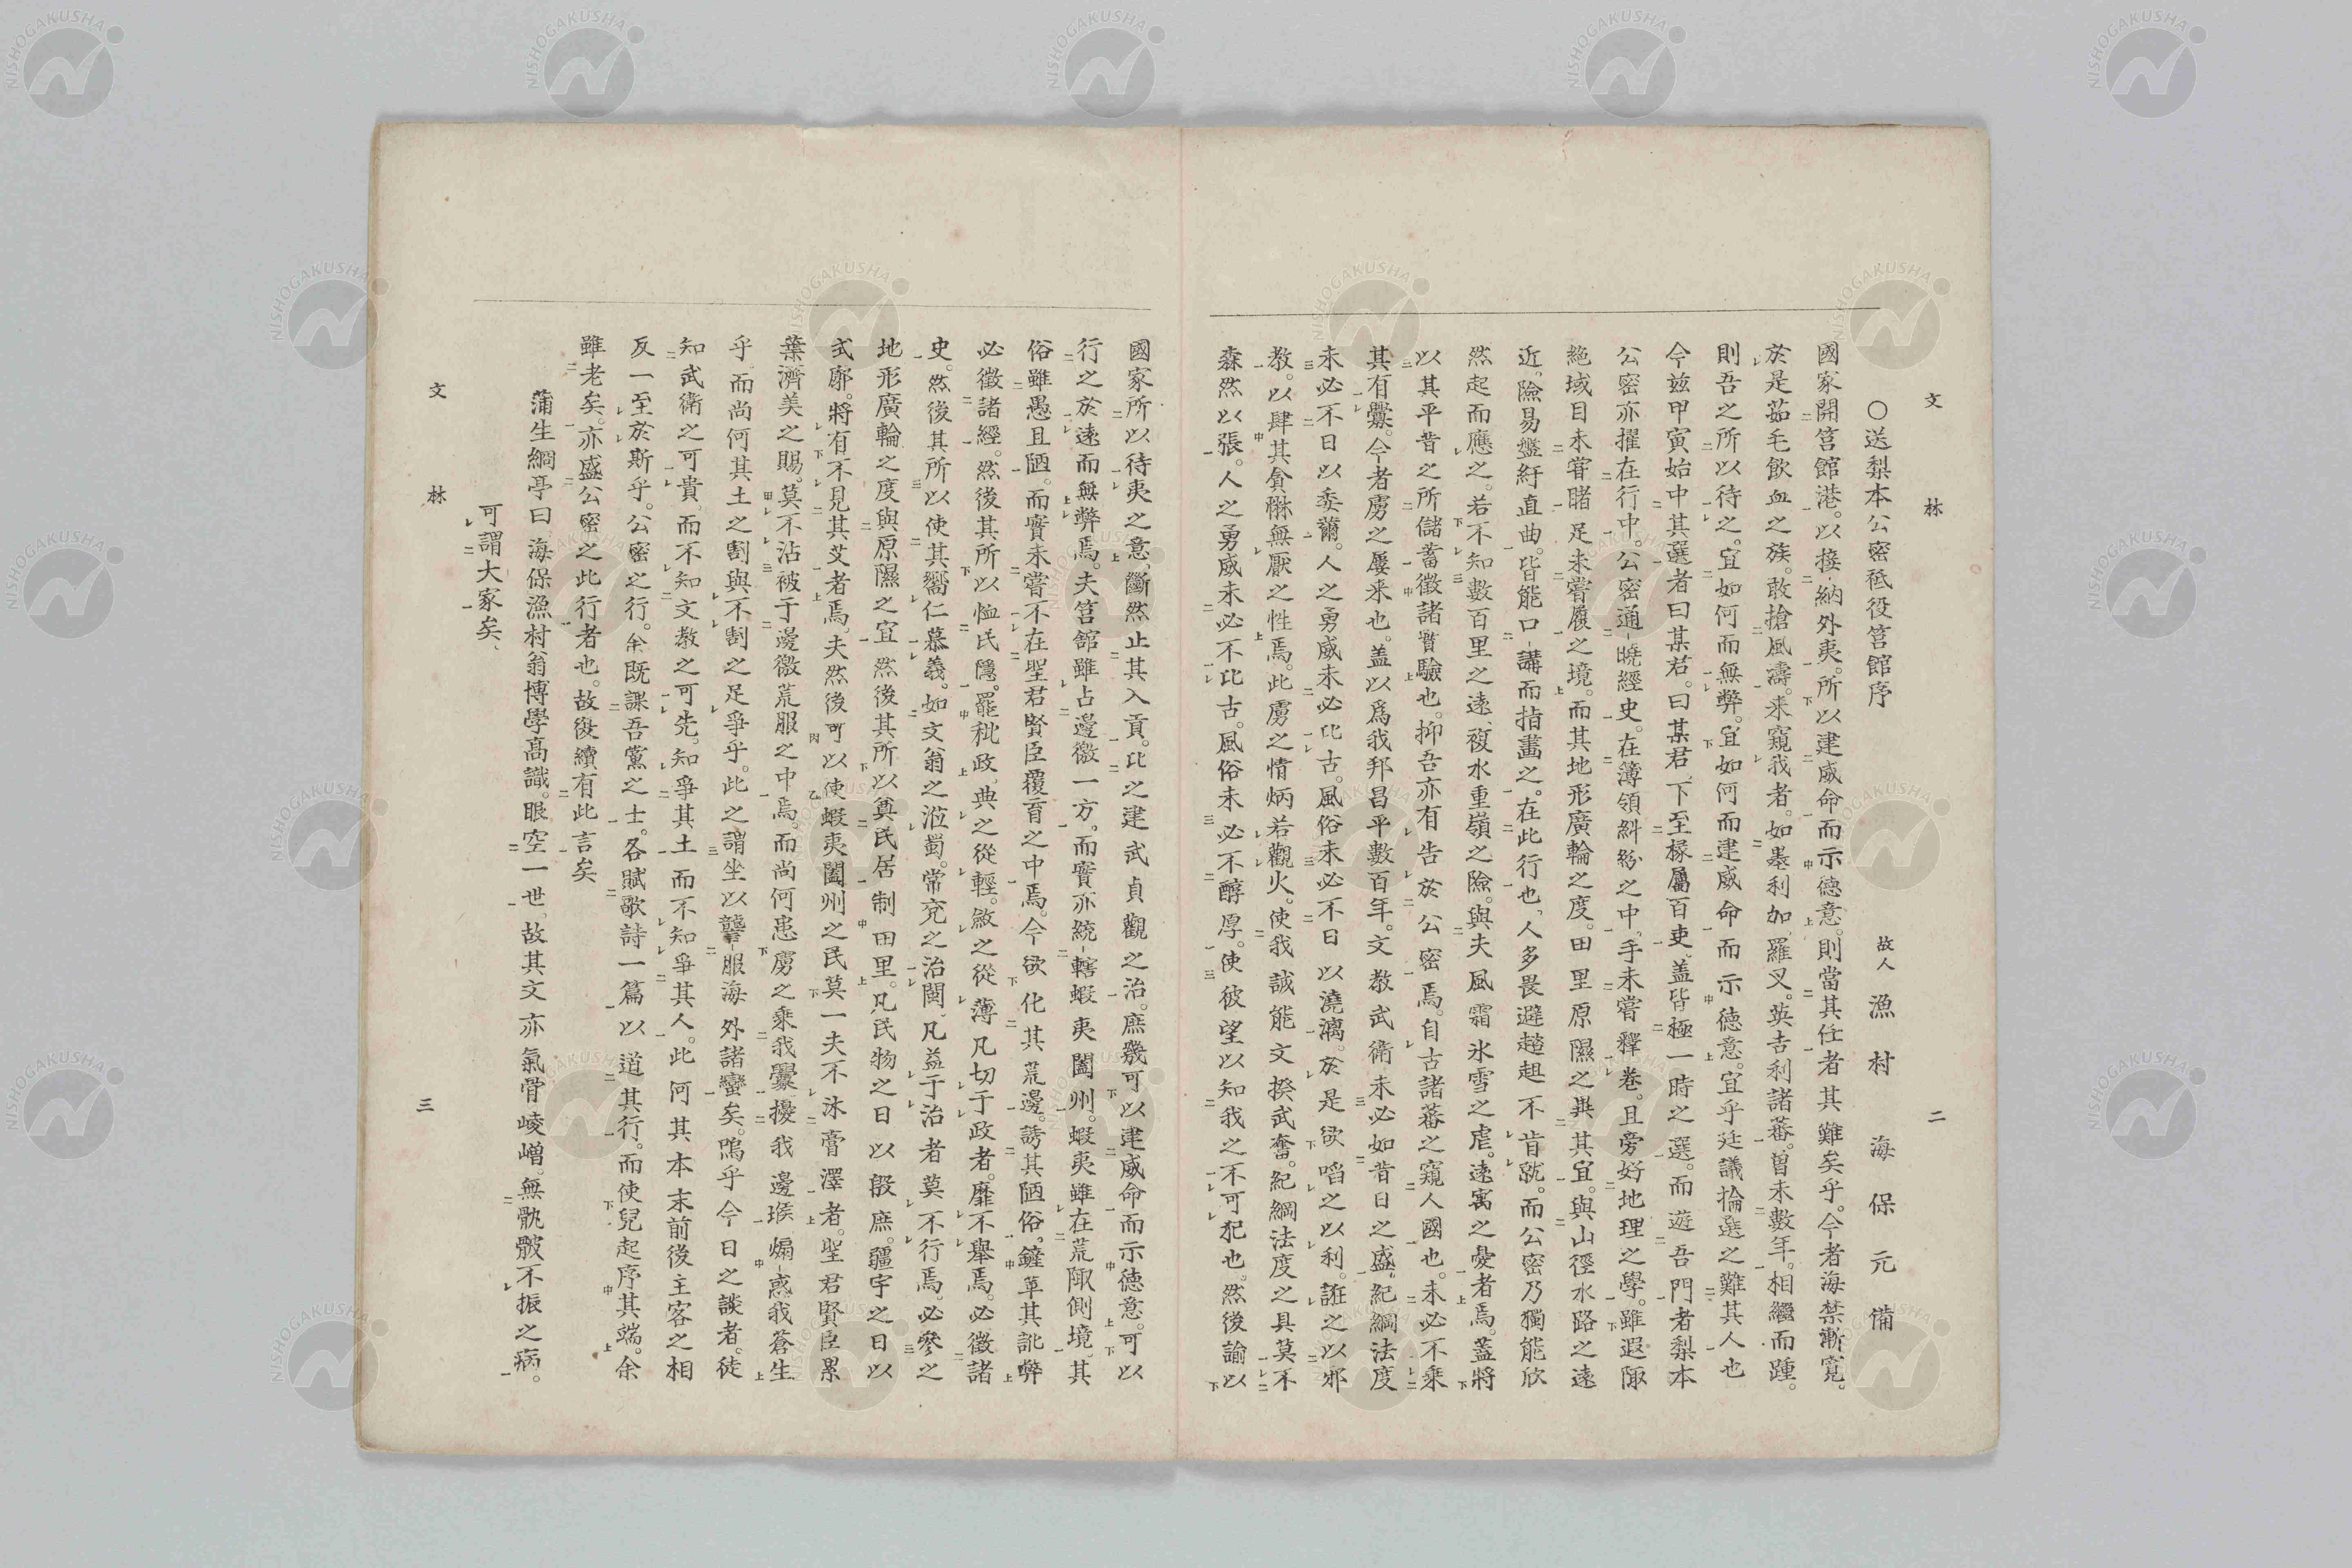 文林 二
○送梨本公密祗役筥館序 故人 漁村 海保元備
國家開筥館港。以接納外夷。所以建威命而示德意。則當其任者其難矣乎。今者海禁漸寬。
於是茹毛飲血之族。敢搶風濤。來窺我者。如墨利加、羅叉。英吉利諸蕃。曽未數年。相繼而踵。
則吾之所以待之。宜如何而無弊。宜如何而建威命而示德意。宜乎廷議掄選之難其人也
今玆甲寅始中其選者曰某君。曰某君、下至椽屬百吏。盖皆極一時之選。而遊吾門者梨本
公密亦擢在行中。公密通曉經史。在簿領糾紛之中、手未嘗釋卷。且旁好地理之學。雖遐陬
絶域目未甞睹足未嘗履之境。而其地形廣輪之度。田里原隰之典其宜。與山徑水路之遠
近。險易盤紆直曲。皆能口講而指畫之。在此行也、人多畏避趦趄不肯就。而公密乃獨能欣
然起而應之。若不知數百里之遠、複水重嶺之險。與夫風霜氷雪之虐。遠寓之憂者焉。盖將
以其平昔之所儲蓄徵諸實驗也。抑吾亦有告於公密焉。自古諸蕃之窺人國也。未必不乘
其有釁。今者虜之屢来也。盖以爲我邦昌平數百年。文教武衛未必如昔日之盛。紀綱法度
未必不日以委薾。人之勇威未必比古。風俗未必不日以澆漓。於是欲啗之以利。誑之以邪
教。以肆其貪惏無厭之性焉。此虜之情炳若觀火。使我誠能文揆武奮。紀綱法度之具莫不
森然以張。人之勇威未必不比古。風俗未必不醇厚。使彼望以知我之不可犯也。然後諭以
國家所以待夷之意、斷然止其入貢。比之建武貞觀之治。庶幾可以建威命而示德意。可以
行之於遠而無弊焉。夫筥館雖占邊徼一方。而實亦統轄蝦夷闔州。蝦夷雖在荒陬側境、其
俗雖愚且陋。而實未嘗不在聖君賢臣覆育之中焉。今欲化其荒邊。謗其陋俗。鏟革其訛弊
必徵諸經。然後其所以恤民隱。罷秕政、典之從輕。斂之從薄凡切于政者。靡不舉焉。必徵諸
史。然後其所以使其嚮仁慕義。如文翁之涖蜀。常兗之治閩、凡益于治者莫不行焉。必參之
地形廣輪之度與原隰之宜然後其所以奠民居制田里。凡民物之日以殷庶。疆宇之日以
式廓。將有不見其艾者焉。夫然後可以使蝦夷闔州之民莫一夫不沐膏澤者。聖君賢臣累
葉濟美之賜。莫不沾被于邊徼荒服之中焉。而尚何患虜之乘我釁擾我邊堠煽惑我蒼生
乎而尚何其土之割與不割之足爭乎。此之謂坐以讋服海外諸蠻矣。嗚乎今日之談者。徒
知武衛之可貴而不知文教之可先。知爭其土而不知爭其人。此何其本末前後主客之相
反一至於斯乎。公密之行。余既課吾黨之士。各賦歌詩一篇以道其行。而使兒起序其端。余
雖老矣。亦盛公密之此行者也。故復續有此言矣
蒲生綱亭曰海保漁村翁博學高識。眼空一世、故其文亦氣骨崚嶒。無骩骳不振之病。
可謂大家矣、
文林 三